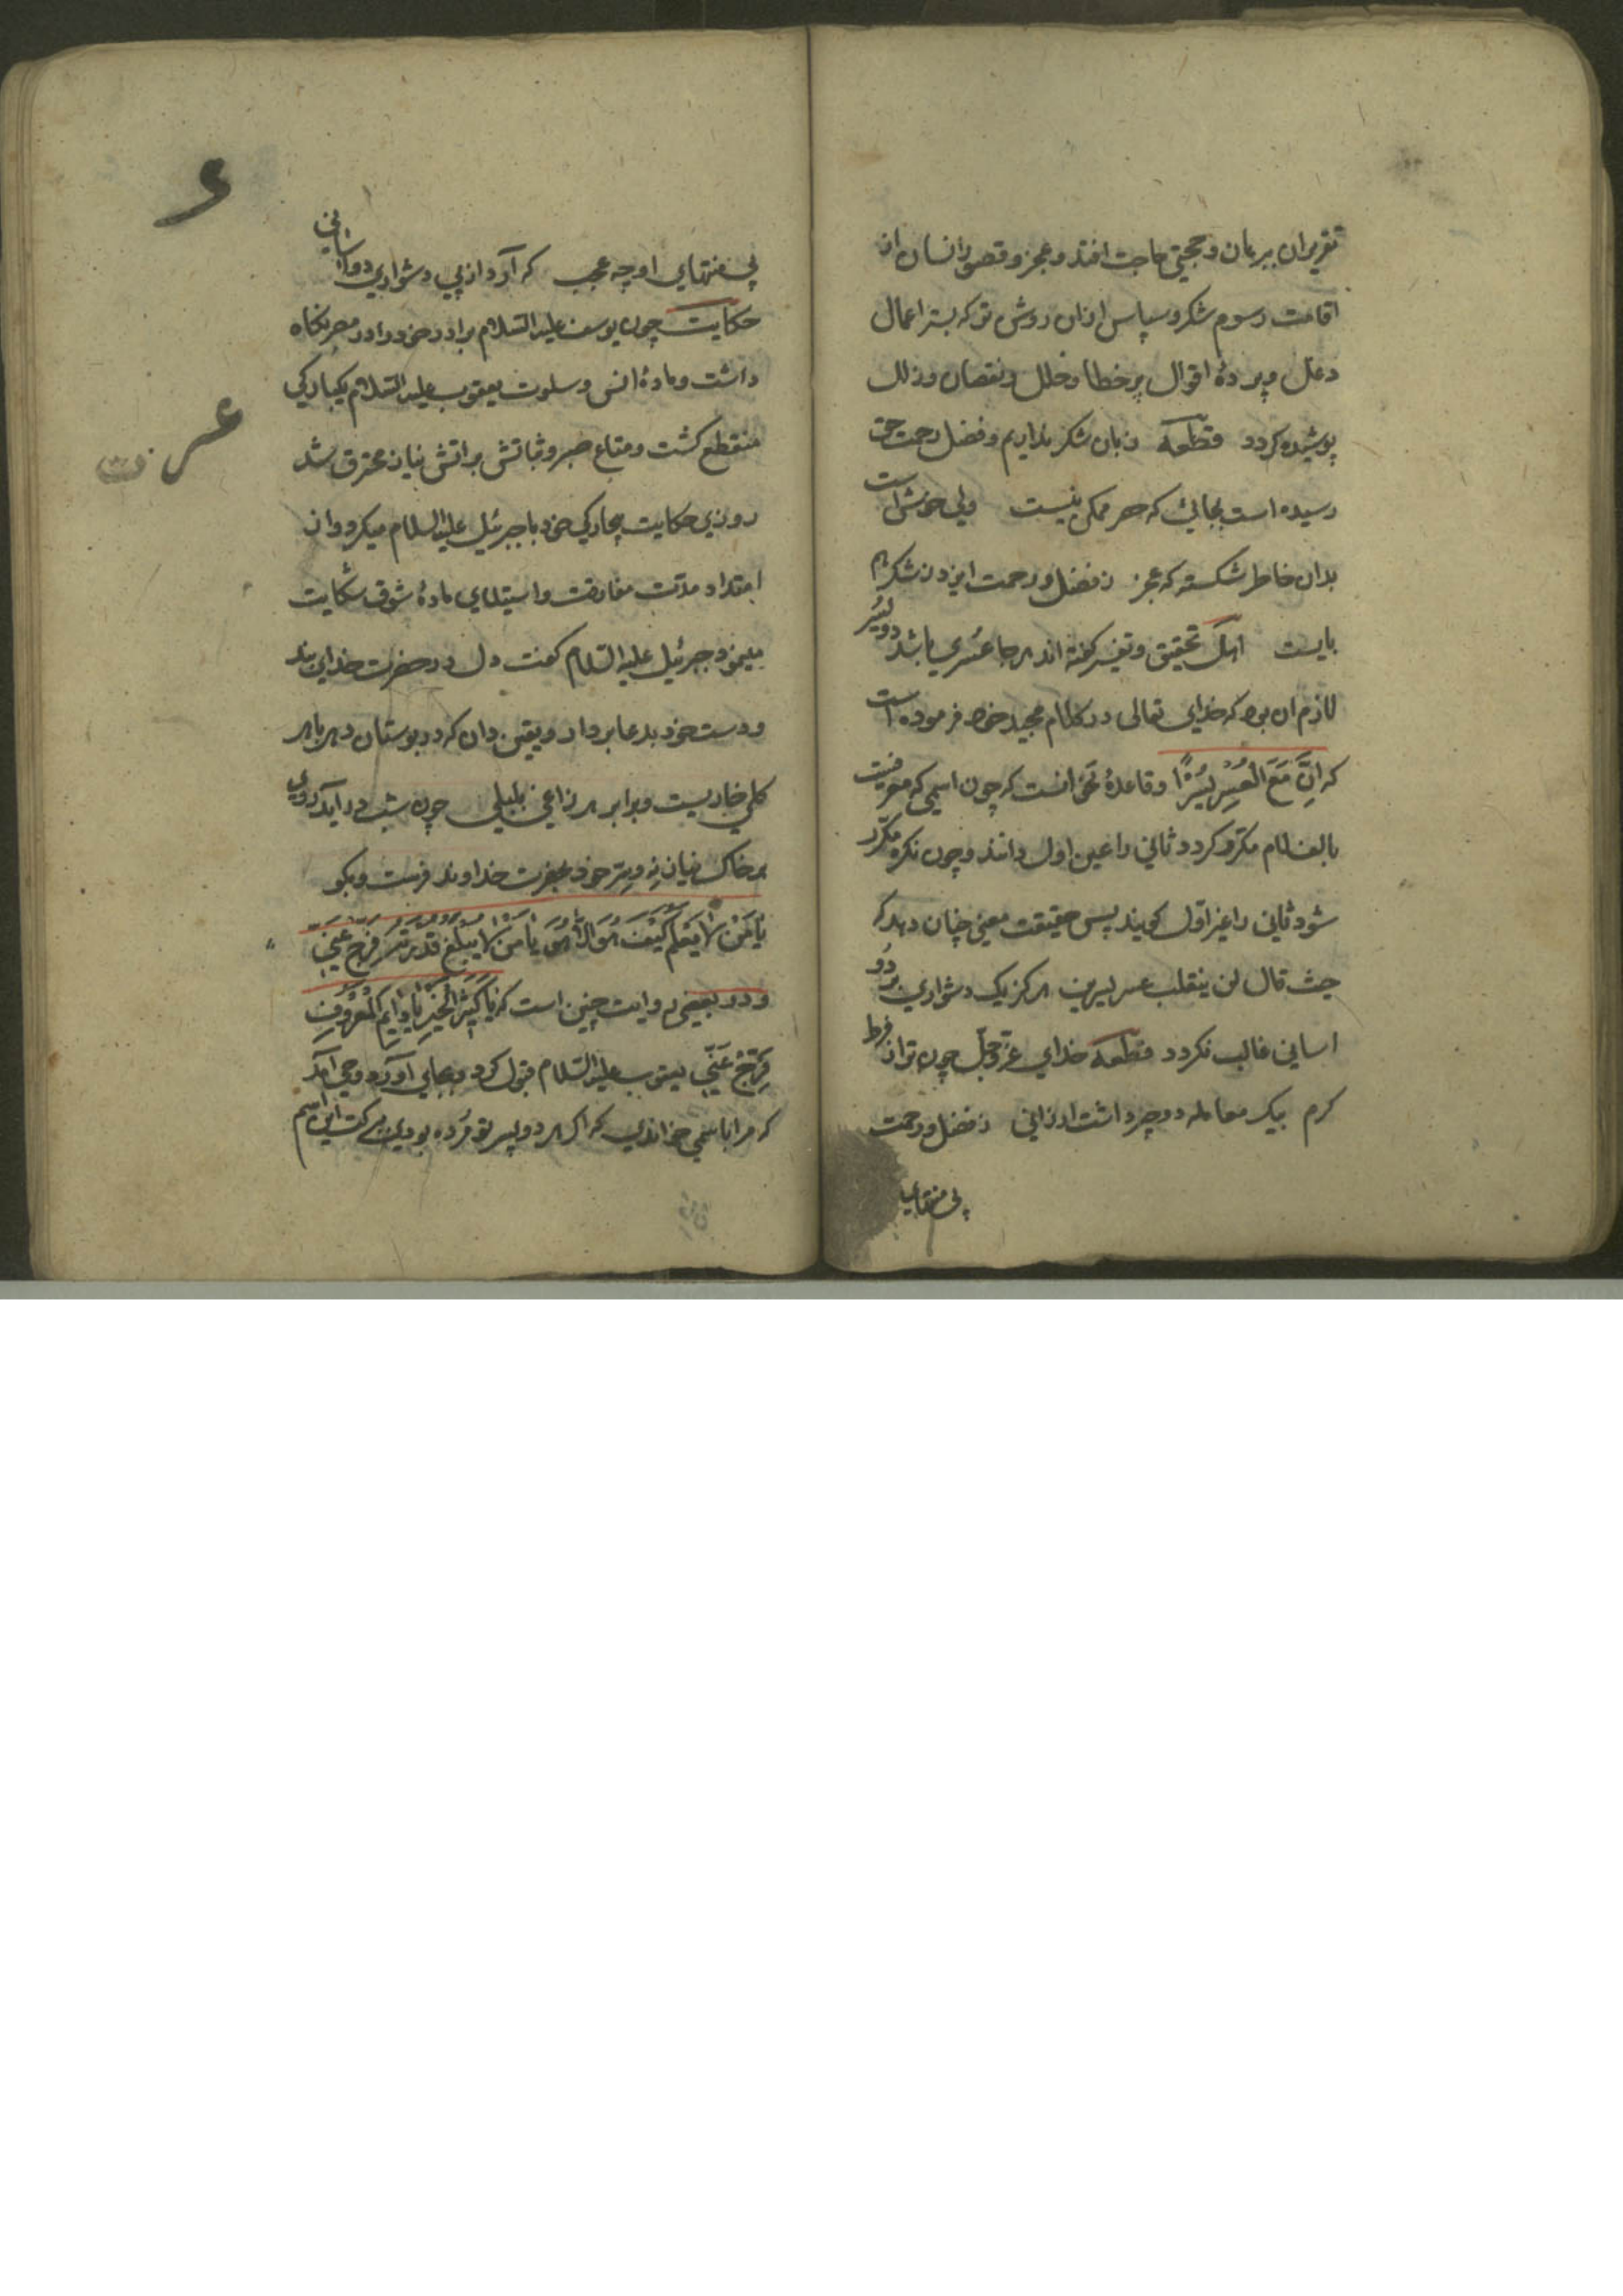 تقریران ببرهان وحجتی حاجت افتد وعجز وقصور انسان از
اقامت رسوم شکر وسپاس ازان روشن ترکه بستر اعمال
دغل وپردهٔ اقوال پرخطا وخلل ونقصان وزلل
پوشیده کردد قطعه زبان شکر نداریم وفضل رحمت حق
رسیده است بجائی که حصر ممکن نیست ولی خوش است
بدان خاطر شکسته که عجز ز فضل ورحمت ایزد ز شکر هم
بایست اهل تحقیق وتفسیر کفته اند هرجا عسری باشد دو یسر
لازم ان بود که خدای تعالی در کلام مجید خود فرموده است
که اِنَّ مَعَ الْعُسْرِ یُسْرًا وقاعدهٔ نحو انست که چون اسمی که معرفست
بالف لام مکرر کردد ثانی را عین اول دانند وچون نکره مکرر
شود ثانی را غیر اول کویند پس حقیقت معنی چنان دهد که
حیث قال لن یغلب عسر یسرین هرکز یک دشواری بر دو
اسانی غالب نکردد قطعه خدای عزّوجلّ چون تراز فرط
کرم بیک معامله دوچیر داشت ارزانی ز فضل ورحمت
بی منتهای
۶
بی منتهای او چه عجب که آرد از پی دشواری دو اسانی
حکایت چون یوسف علیه السلام برادر خود را در مصر نکاه
داشت ومادهٔ انس وسلوت یعقوب علیه السلام یکبارکی
منقطع کشت ومتاع صبر وثباتش براتش نیاز محترق شد
روزی حکایت بیچارکی خود با جبرئیل علیه السلام میکرد واز
امتداد مدّت مفارقت واستیلای مادهٔ شوق شکایت
مینمود جبرئیل علیه السلام کفت دل در حضرت خدای بند
ودست خود بدعا بردار ویقین دان که در بوستان دهر با هر
کلی خاریست وبرابر هر زاغی بلبلی چون شب درآید روی
بر خاک نیاز نه وسرّ خود بحضرت خداوند فرست وبکو
یَا مَنْ لا یَعْلَمُ کَیْفَ هُوَ اِلّا هُوَ یَا مَنْ لا یَبْلُغُ قُدْرَتَهُ فَرِّجْ عَنِّی
ودر بعضی روایت چنین است که یَا کَثِیْرَ الْخَیْرِ یَا دَایِمَ الْمَعْرُوْفِ
فَرِّجْ عَنِّی یعقوب علیه السلام قبول کرد وبجای آورد وحی آمد
که مرا باسمی خواندی که اکر هر دو پسر تو مُرده بودی ببرکت این اسم